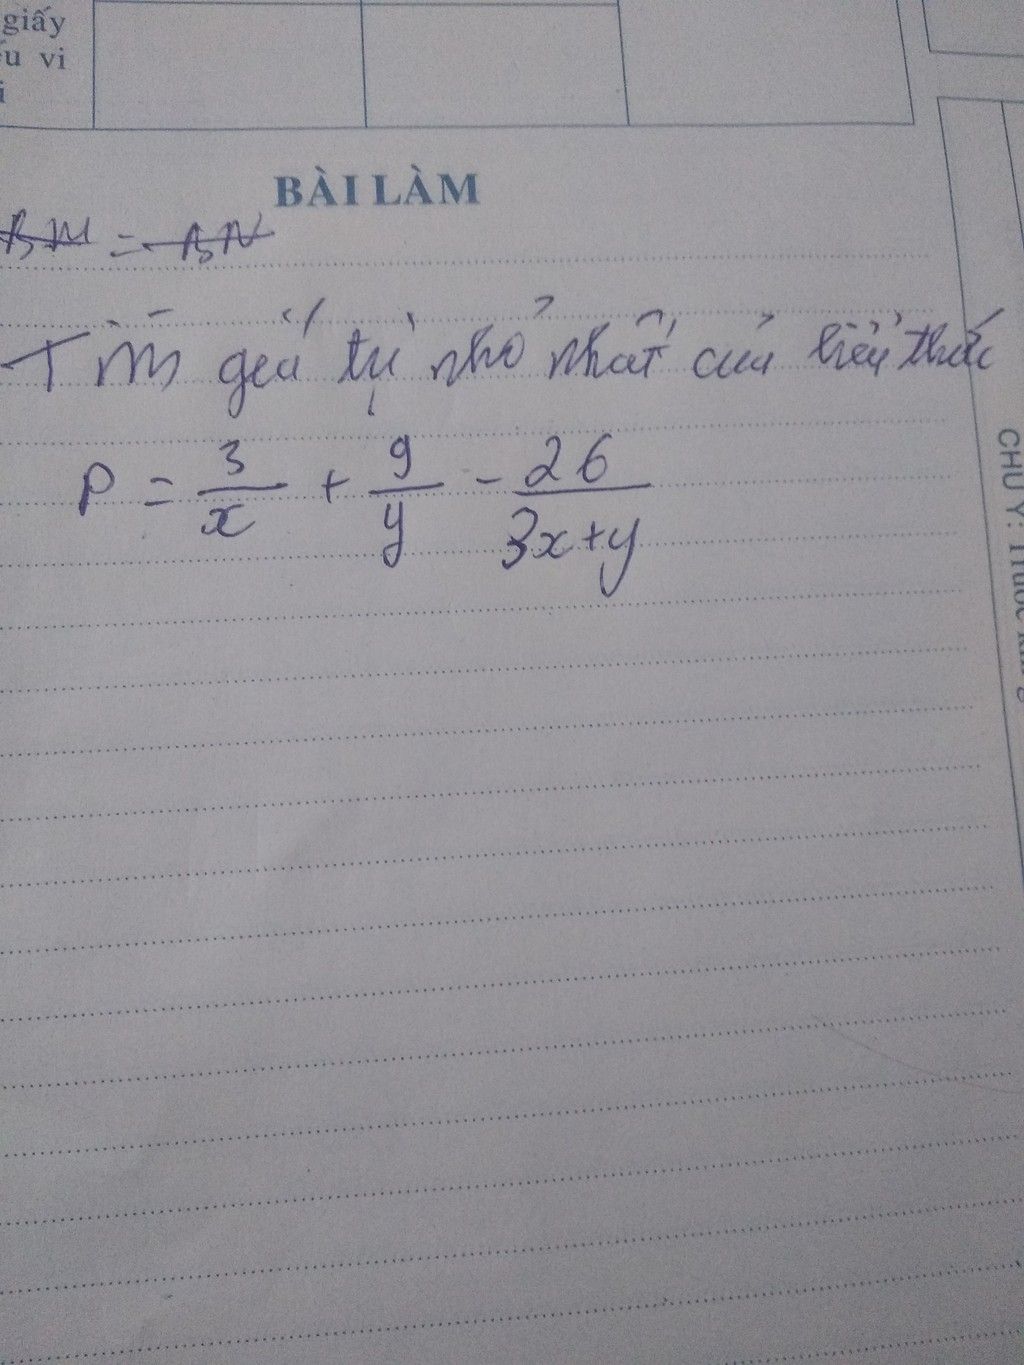 giấy
ếu vi
i
BÀI LÀM
BM = BN
Tìm giá trị nhỏ nhất của biểu thức
P = 3/x + 9/y - 26/(3x+y)
CHÚ Ý: